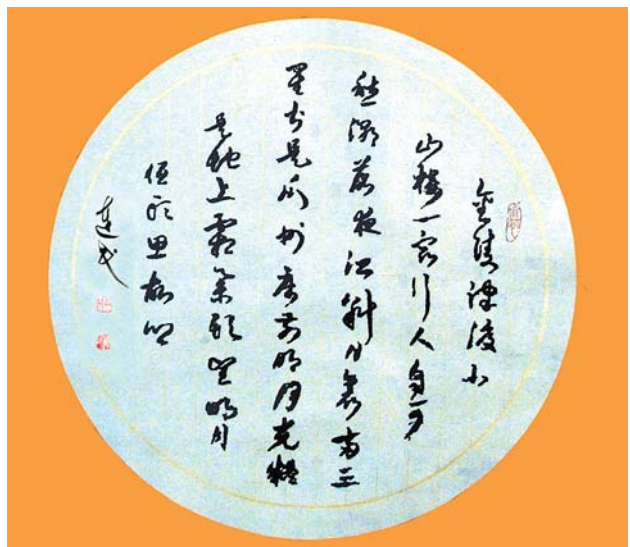 金陵津渡小
山樓一宿行人自可
愁潮落夜江斜月裏兩三
星火是瓜州床前明月光疑
是地上霜舉頭望明月
低頭思故鄉